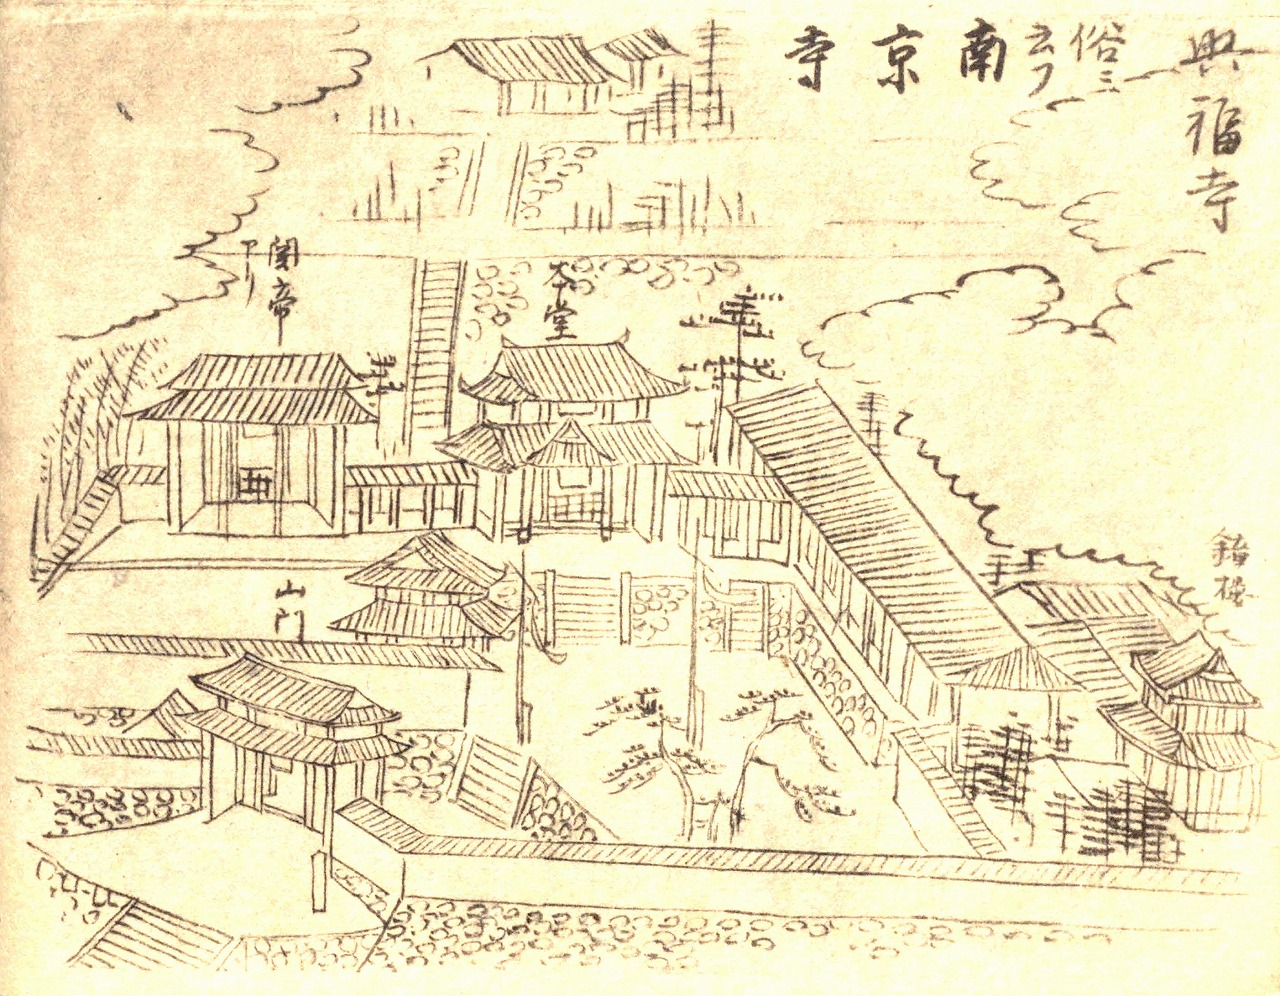 興福寺
俗ニ
云フ
南京寺
本堂
関帝
アリ
山門
鐘楼